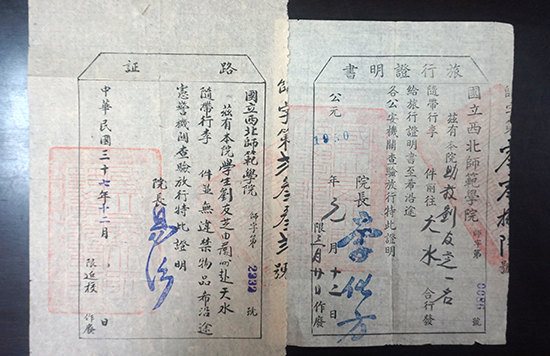 旅行證明書
國立西北師範學院 師字第 號
茲有本院助教劉友芝一名
隨帶行李 件前往天水 合行發
給旅行證明書至希沿途
各公安機關查驗放行特此證明
院長 李化方
公元1950年元月十二日
限三月廿日作廢
師字第貳叁叁貳號
路証
國立西北師範學院 師字第2332號
茲有本院學生劉友芝由蘭州赴天水
隨帶行李 件並無違禁物品希沿途
憲警機關查驗放行特此證明
院長
中華民國三十七年十二月 日
限返校作廢